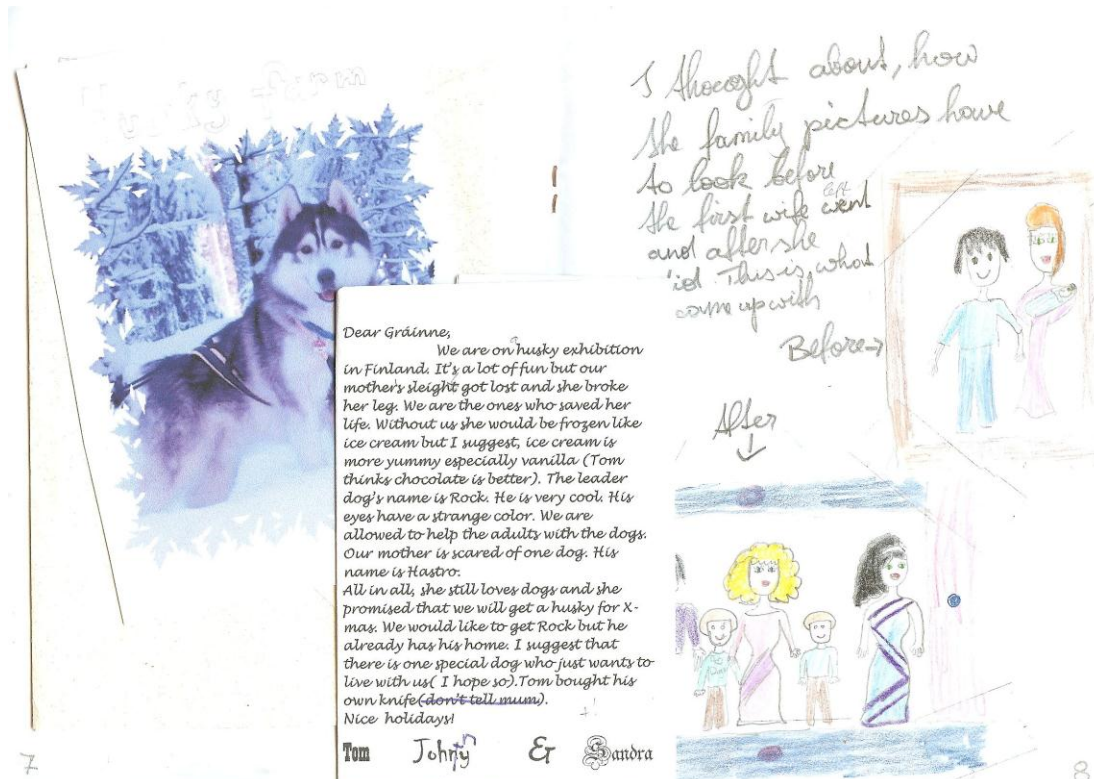 Dear Gráinne,
We are on husky exhibition
in Finland. It's a lot of fun but our
mother's sleight got lost and she broke
her leg. We are the ones who saved her
life. Without us she would be frozen like
ice cream but I suggest, ice cream is
more yummy especially vanilla (Tom
thinks chocolate is better). The leader
dog's name is Rock. He is very cool. His
eyes have a strange color. We are
allowed to help the adults with the dogs.
Our mother is scared of one dog. His
name is Hastro.
All in all, she still loves dogs and she
promised that we will get a husky for X-
mas. We would like to get Rock but he
already has his home. I suggest that
there is one special dog who just wants to
live with us( I hope so).Tom bought his
own knife(don't tell mum).
Nice holidays!
Tom Johny & Sandra
7
I thought about, how
the family pictures have
to look before
left
the first wife went
and after she
'id. This is, what
came up with
Before→
After
↓
8